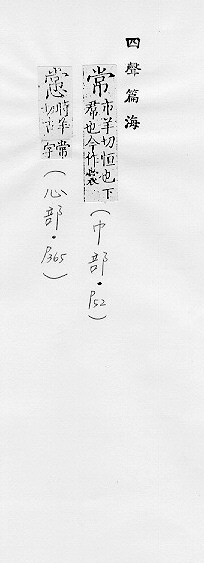 四聲篇海
常 市羊切恒也下
帬也今作裳
(巾部·P52)
時羊常
切古字
(心部·P365)